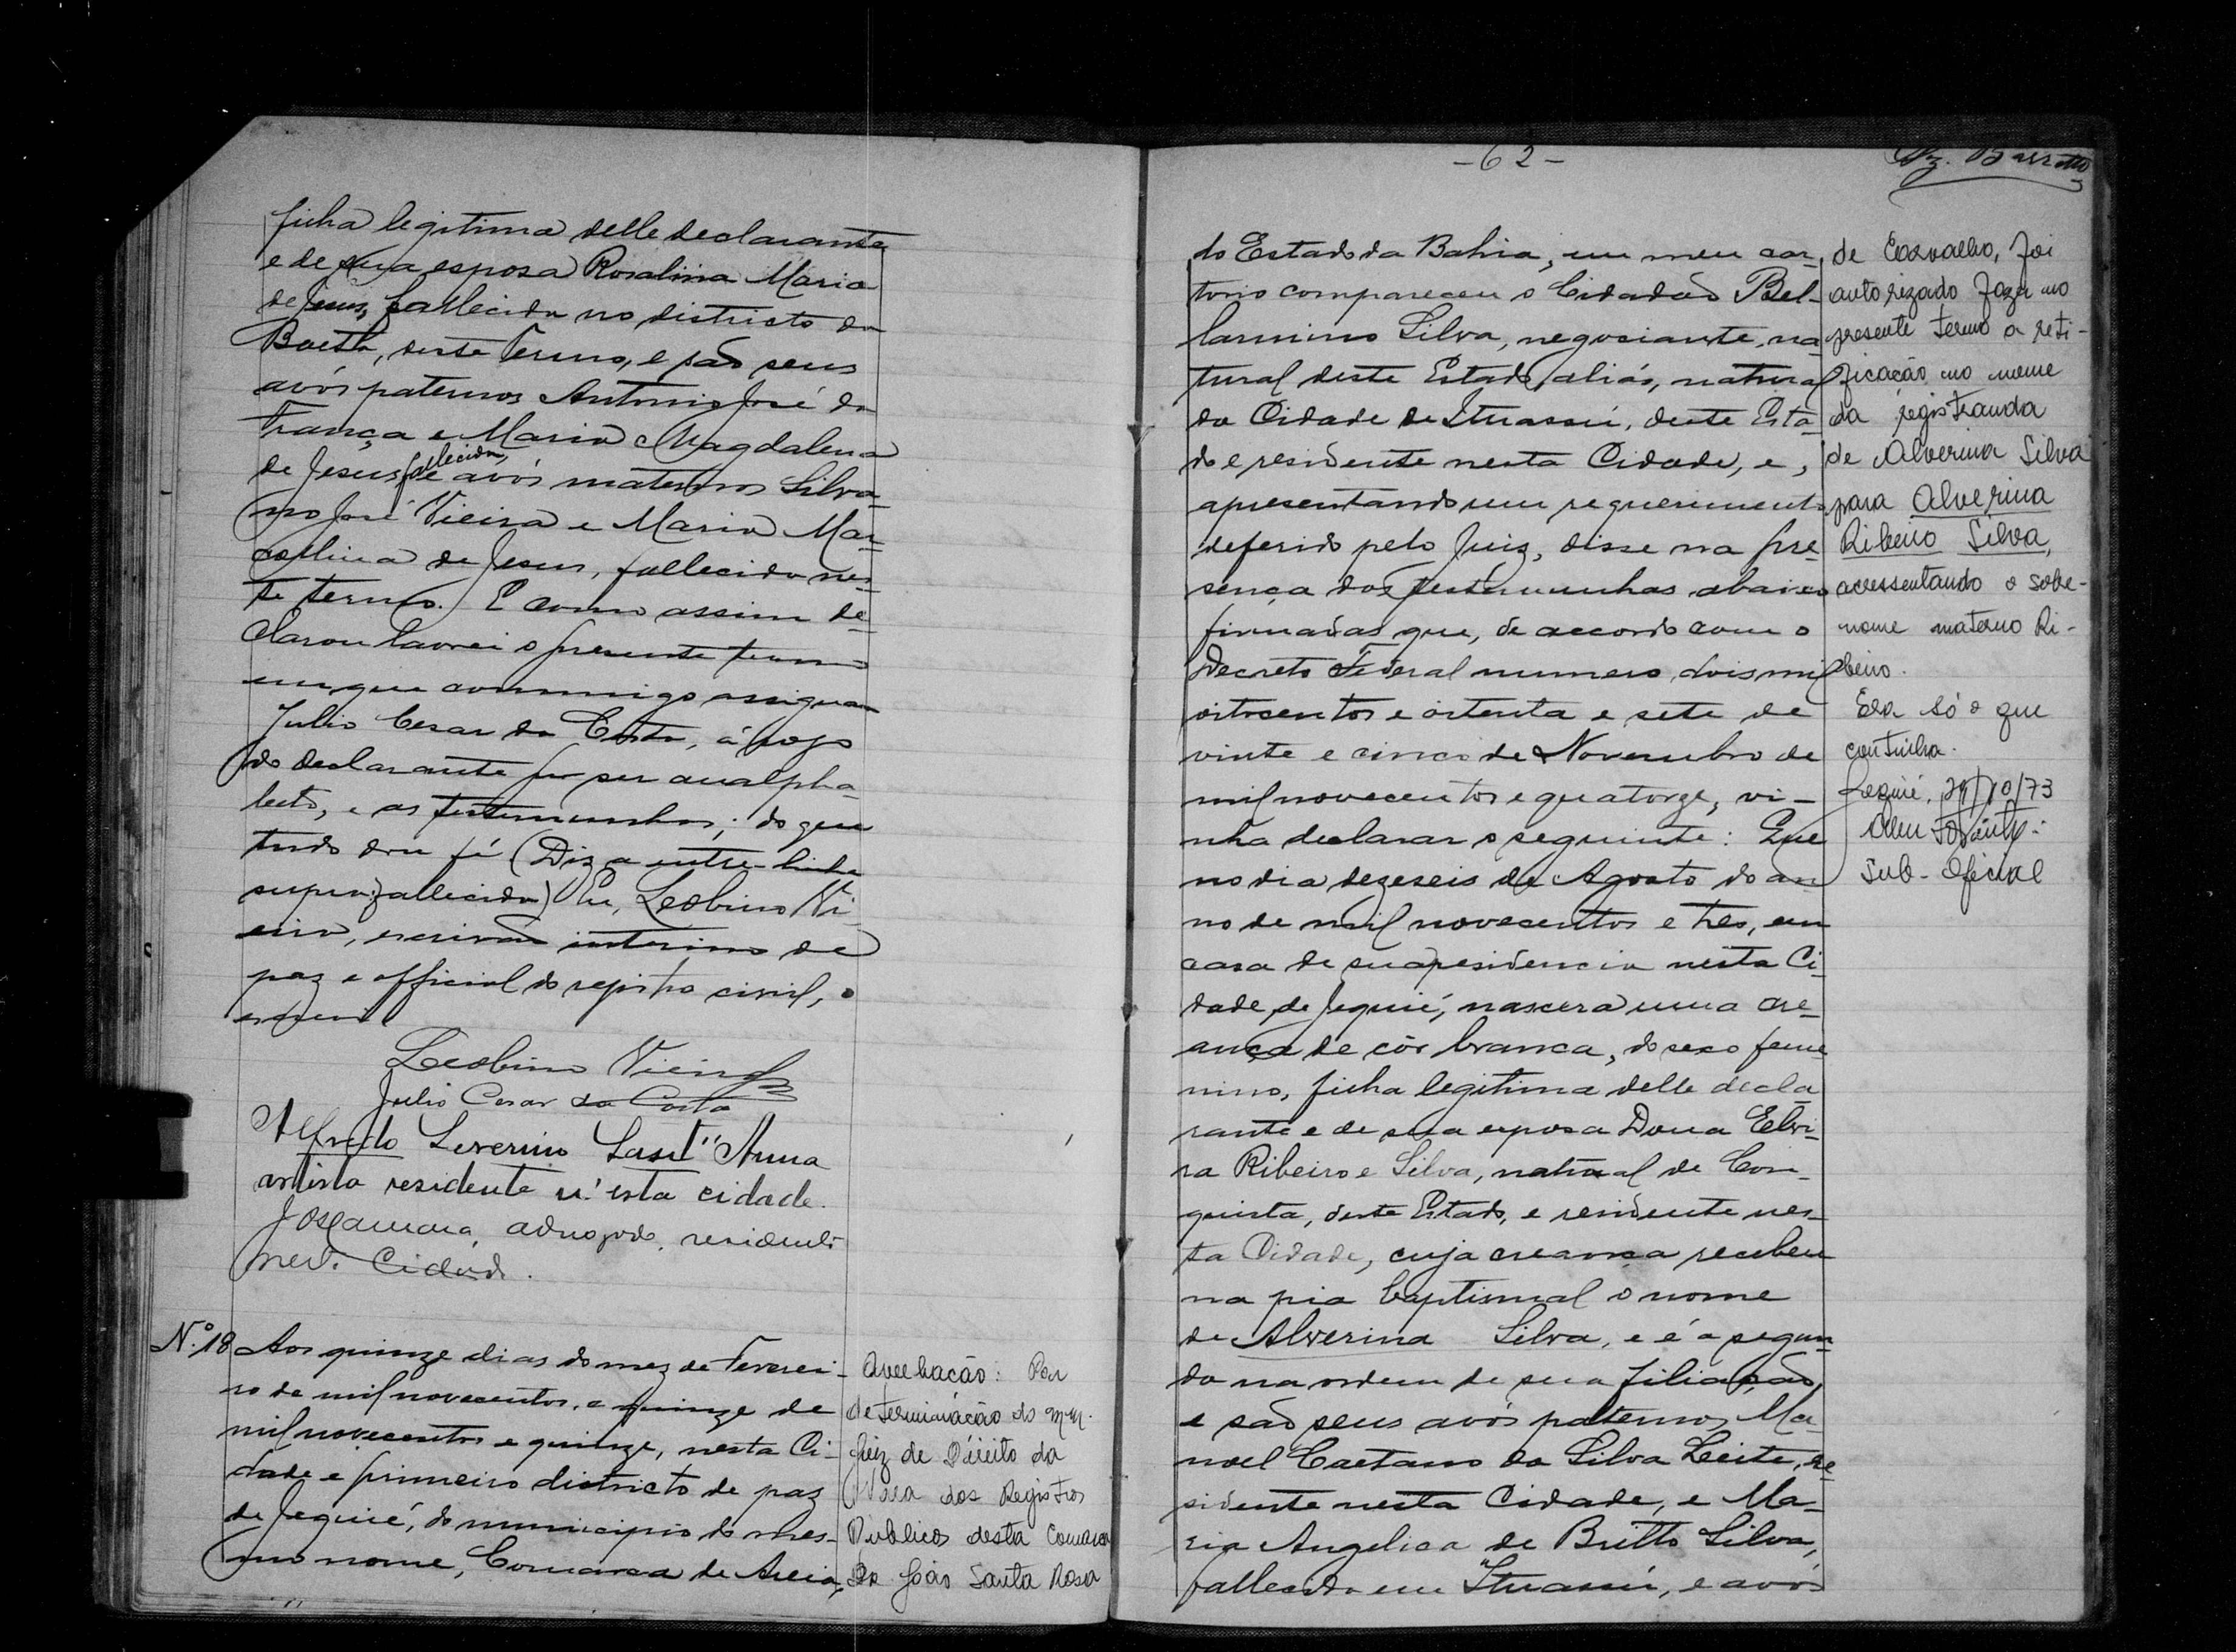 filha legitima delle declarante
e de sua esposa Rosalina Maria
de Jesus, fallecida no districto da
Boeta, deste Termo, e são seus
avós paternos Antonio José da
França e Maria Magdalena
de Jesus, fallecida, e avós maternos Silva-
no José Vieira e Maria Mar-
collina de Jesus, fallecida nes-
te termo. E como assim de-
clarou lavrei o presente termo
em que commigo assignam
Julio Cesar da Costa, á rogo
do declarante por ser analpha-
beto, e as testemunhas; do que
tudo dou fé (Diz a entre-linha
supra: fallecida) Eu, Leobino Vi-
eira, escrivão interino de
paz e official do registro civil, o
escrevi.
Leobino Vieira
Julio Cesar da Costa
Alfredo Severino Sant'Anna
artista residente n'esta cidade.
advogado, residente
nest. Cidade.
Nº 18 Aos quinze dias do mez de Feverei-
ro de mil novecentos, e quinze de
mil novecentos e quinze, nesta Ci-
dade e primeiro districto de paz
de Jequié, do municipio do mes-
mo nome, Comarca de Areia,
Averbação: Por
determinação do MM.
Juiz de Direito da
Vara dos Registros
Públicos desta Comarca
Dr. João Santa Rosa
-62-
Barretto
do Estado da Bahia, em meu car-
torio compareceu o Cidadão Bel-
larmino Silva, negociante, na-
tural deste Estado, aliás, natural
da Cidade de Ituassú, deste Esta-
do e residente nesta Cidade, e,
apresentando um requerimento
deferido pelo Juiz, disse na pre-
sença das testemunhas abaixo
firmadas que, de accordo com o
Decreto Federal numero dois mil
oitocentos e oitenta e sete de
vinte e cinco de Novembro de
mil novecentos e quatorze, vi-
nha declarar o seguinte: Que
no dia dezeseis de Agosto do an-
no de mil novecentos e tres, em
casa de sua residencia nesta Ci-
dade de Jequié, nascera uma cre-
ança de côr branca, do sexo feme-
nino, filha legitima delle decla-
rante e de sua esposa Dona Elvi-
ra Ribeiro e Silva, natural de Con-
quista, deste Estado, e residente nes-
ta Cidade, cuja creança recebeu
na pia baptismal o nome
de Alverina Silva, e é a segun-
da na ordem de sua filiação,
e são seus avós paternos Ma-
noel Caetano da Silva Leite, re-
sidente nesta Cidade, e Ma-
ria Angelica de Britto Silva,
fallecida em Ituassú, e avós
de Carvalho, foi
autorizado fazer no
presente termo a reti-
ficação no nome
da registranda
de Alverina Silva
para Alverina
Ribeiro Silva,
acressentando o sobre-
nome materno Ri-
beiro.
Era só o que
continha.
Jequié, 29/10/73
Sub-Oficial